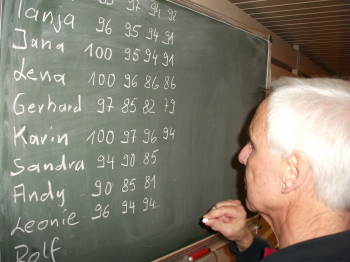 Tanja 97 94 92
Jana 96 95 94 91
Lena 100 95 94 91
Gerhard 100 96 86 86
Karin 97 85 82 79
Sandra 100 97 96 94
Andy 94 90 85
Leonie 90 85 81
Rolf 96 94 94